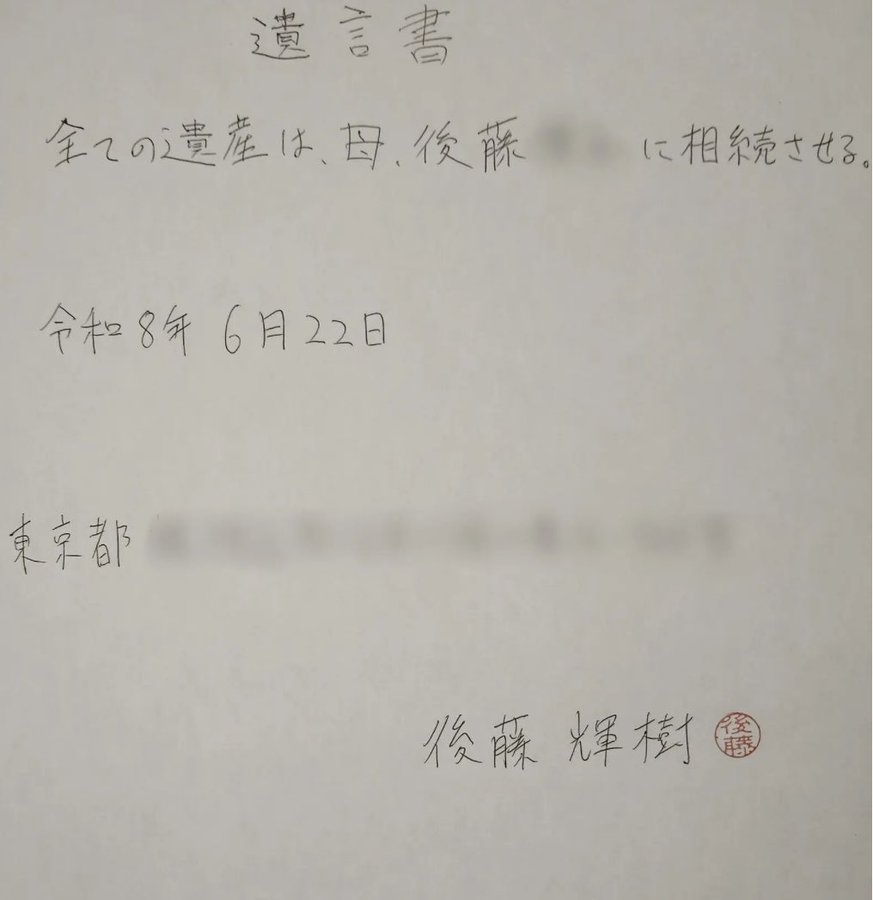 遺言書
全ての遺産は、母、後藤 に相続させる。
令和8年 6月22日
東京都
後藤 輝樹 後藤